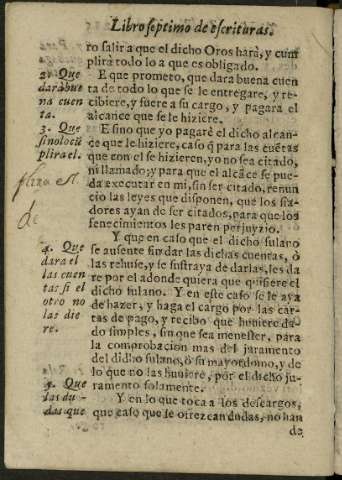 Libro septimo de escrituras.
ro salir a que el dicho Oros hara, y cum
plirà todo lo a que es obligado.
2. Que
darà bue
na cuen
ta.
E que prometo, que dara buena cuen
ta de todo lo que se le entregare, y re-
cibiere, y fuere a su cargo, y pagarà el
alcance que se le hiziere.
3. Que
sinolocũ
plira el.
E sino que yo pagarè el dicho alcan-
ce que le hiziere, caso q̃ para las cuẽtas
que con el se hizieren, yo no sea citado,
ni llamado; y para que el alcãce se pue-
da executar en mi, sin ser citado, renun
cio las leyes que disponen, què los fia-
dores ayan de ser citados, para que los
fenecimientos les paren perjuyzio.
de
4. Que
dara el
las cuen
tas si el
otro no
las die
re.
Y que en caso que el dicho fulano
se ausente sin dar las dichas cuentas, ò
las rehuse, y se sustraya de darlas, les da
re por el adonde quiera que quisiere el
dicho fulano. Y en este caso se le aya
de hazer, y haga el cargo por las car-
tas de pago, y recibo que huuiere da-
do simples, sin que sea menester, para
la comprobacion mas del juramento
del dicho fulano, ò su mayordomo, y de
lo que no las huuiere, por el dicho ju-
ramento solamente.
5. Que
las du-
das que
Y en lo que toca a los descargos,
que caso que se ofrezcan dudas, no han
de